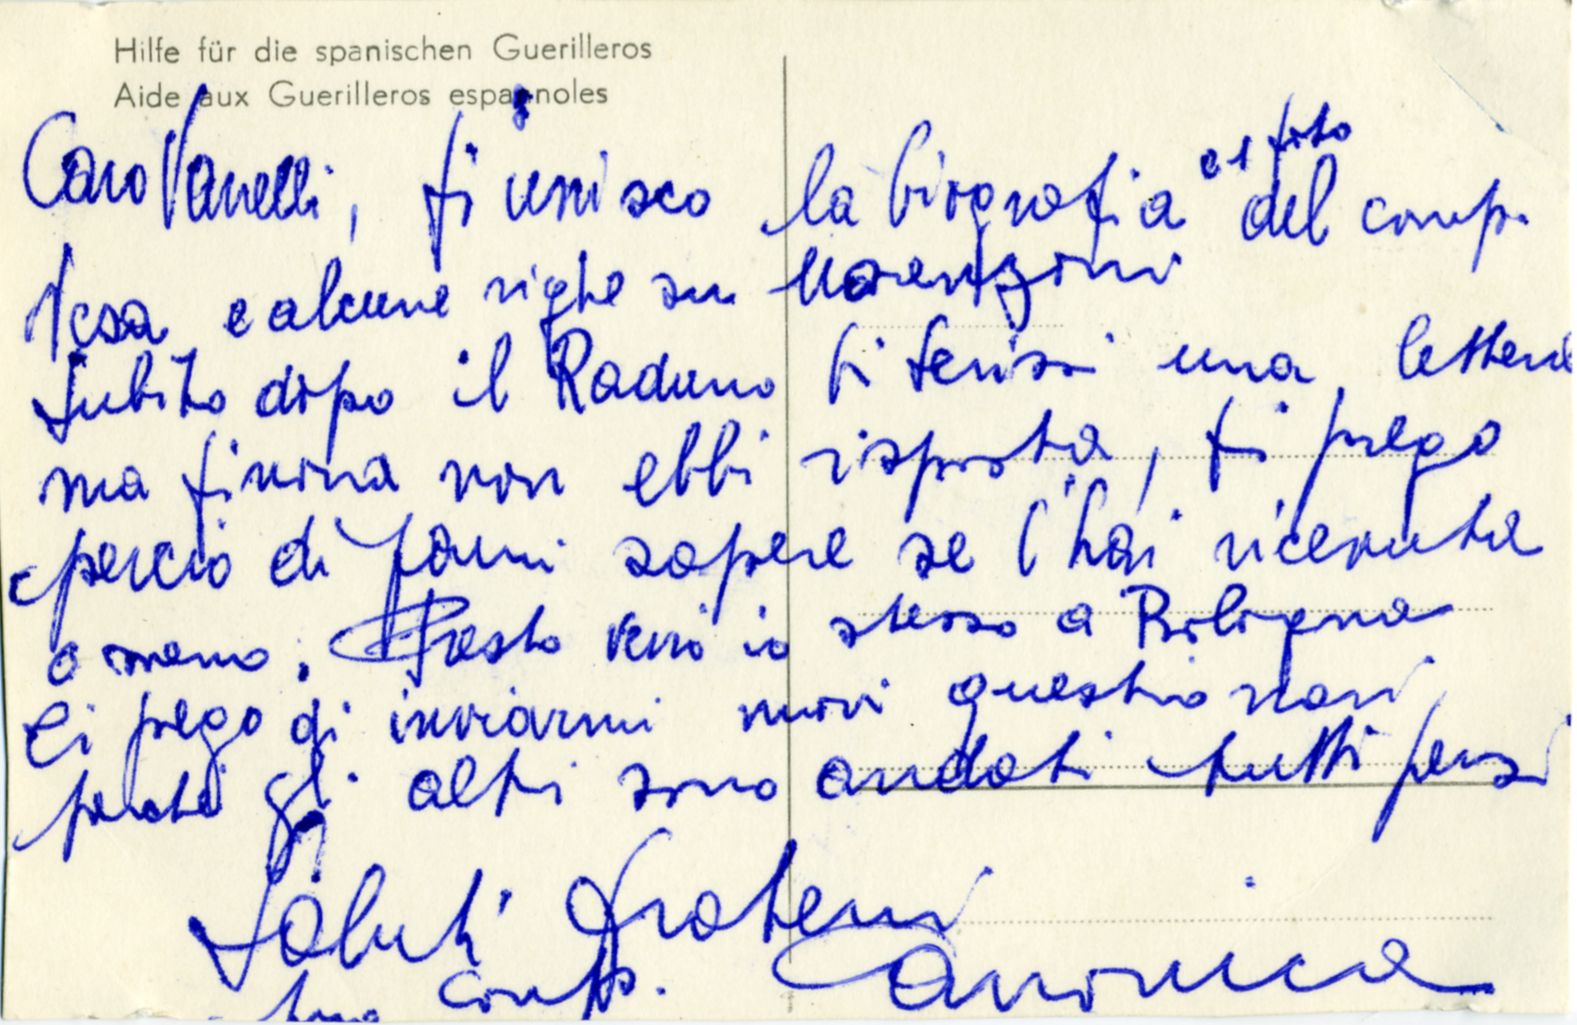 Hilfe für die spanischen Guerilleros
Aide aux Guerilleros espagnoles
Caro Vanelli, ti unisco la biografia e 1 foto del comp.
e alcune righe su Marenzoni
Subito dopo il Raduno ti scrissi una lettera
ma finora non ebbi risposta, ti prego
perciò di farmi sapere se l'hai ricevuta
o meno. Presto verrò io stesso a Bologna
Ti prego di inviarmi nuovi questionari
perché gli altri sono andati tutti persi
Saluti fraterni
tuo comp. Canonica